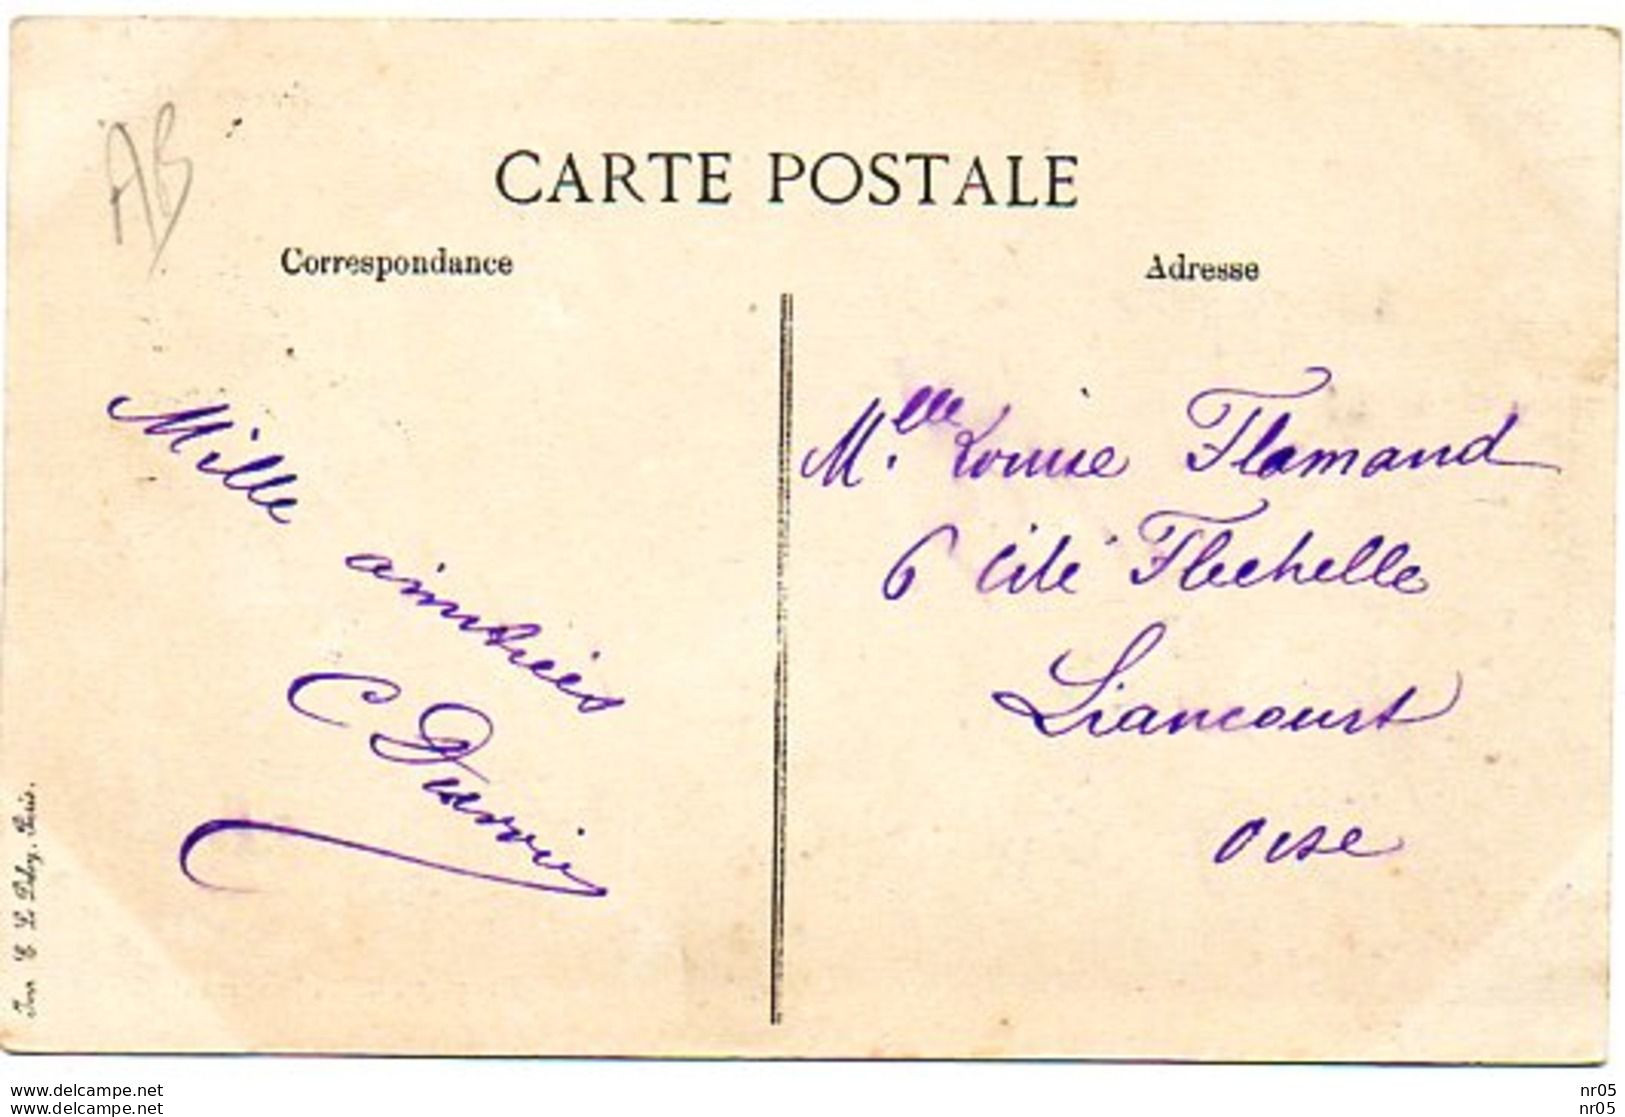 AB
CARTE POSTALE
Correspondance
Adresse
Mille
amitiés
C
Mlle Louise Flamand
6 Cité Flechelle
Liancourt
Oise
E. Le Deley, Paris.
delcampe.net
delcampe.net
nr05
nr05